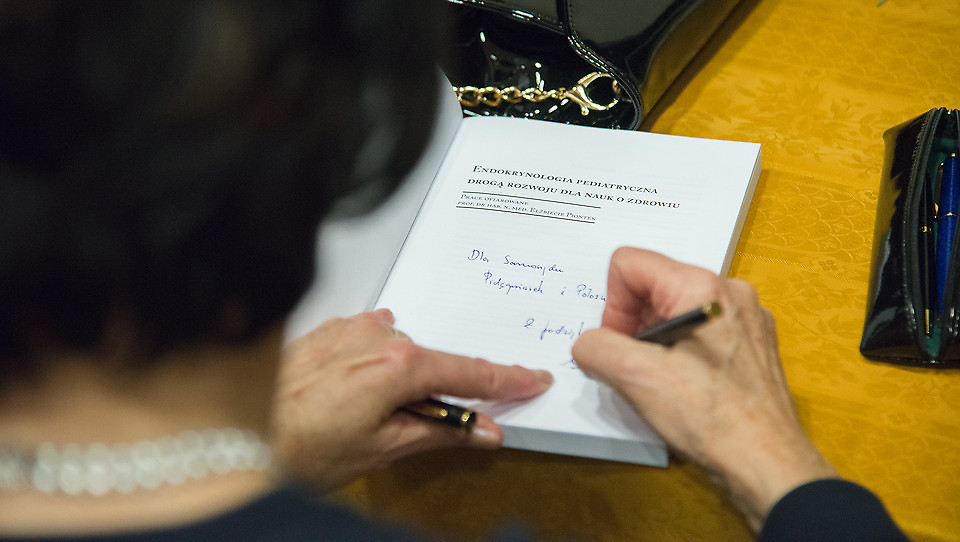 Endokrynologia pediatryczna
drogą rozwoju dla nauk o zdrowiu
Prace ofiarowane
prof. dr hab. n. med. Elżbiecie Piontek
Dla Samorządu
Pielęgniarek i Położn
Z podzię